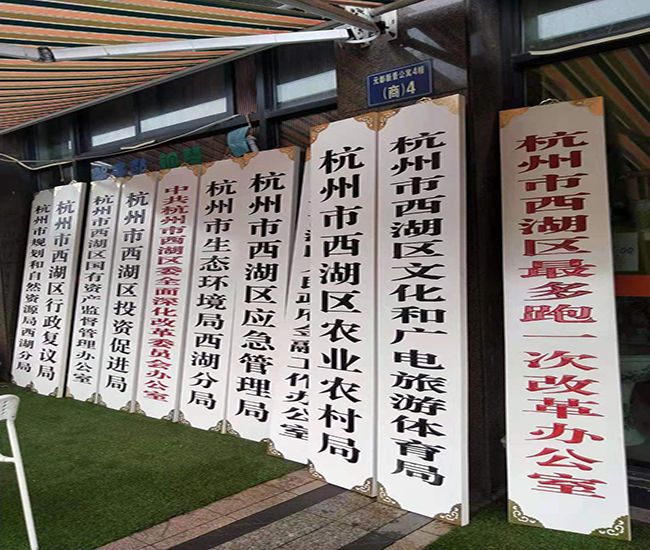 元都新景公寓4幢
(商)4
杭州市规划和自然资源局西湖分局
杭州市西湖区行政复议局
杭州市西湖区国有资产监督管理办公室
杭州市西湖区投资促进局
中共杭州市西湖区委全面深化改革委员会办公室
杭州市生态环境局西湖分局
杭州市西湖区应急管理局
金融工作办公室
杭州市西湖区农业农村局
杭州市西湖区文化和广电旅游体育局
杭州市西湖区最多跑一次改革办公室